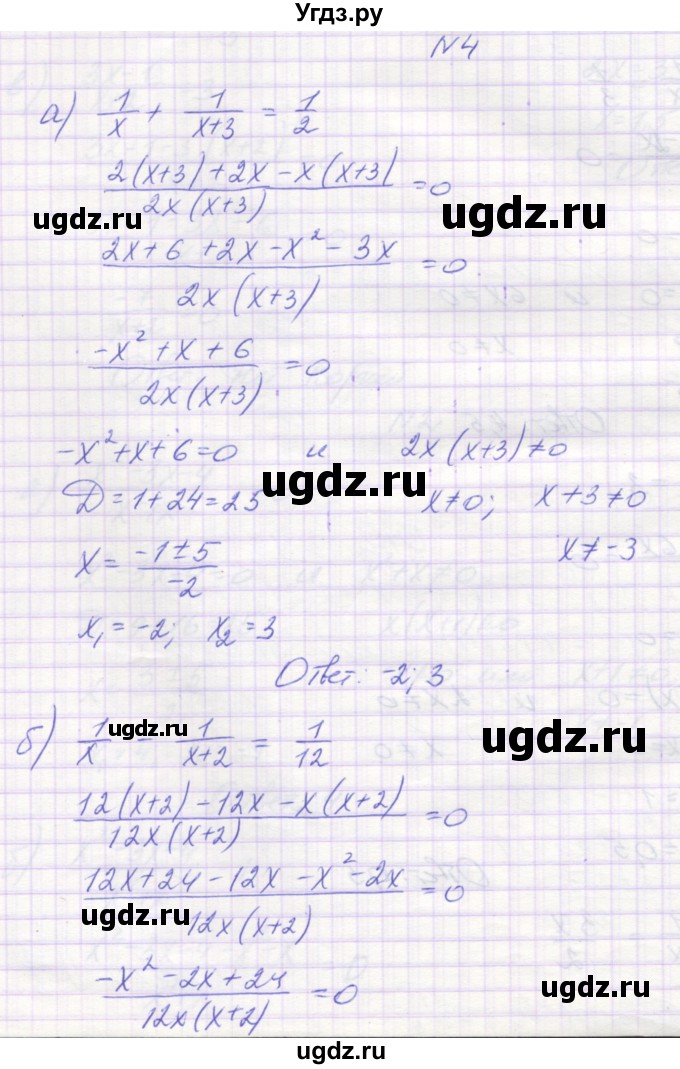 Угдз.ру
N4
а) 1/x + 1/(x+3) = 1/2
(2(x+3)+2x-x(x+3))/(2x(x+3)) = 0
ugdz.ru ugdz.ru
(2x+6+2x-x²-3x)/(2x(x+3)) = 0
(-x²+x+6)/(2x(x+3)) = 0
-x²+x+6=0 и 2x(x+3)≠0
ugdz.ru
Д=1+24=25 x≠0; x+3≠0
x = (-1±5)/(-2) x≠-3
x₁=-2; x₂=3
Ответ: -2; 3
ugdz.ru ugdz.ru
б) 1/x - 1/(x+2) = 1/12
(12(x+2)-12x-x(x+2))/(12x(x+2)) = 0
(12x+24-12x-x²-2x)/(12x(x+2)) = 0
ugdz.ru
(-x²-2x+24)/(12x(x+2)) = 0
ugdz.ru
ugdz.ru